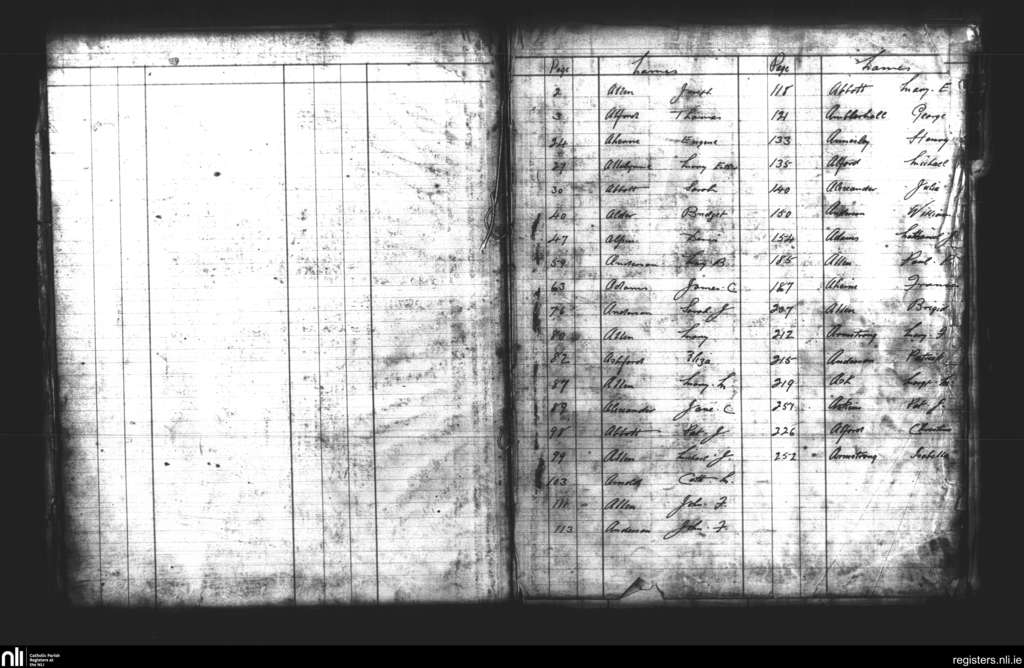 Page Names Page Names
2 Allen Joseph 118 Abbott Mary E
3 Alford Thomas 121 Amblerhall George
24 Aherne Eugene 133 Annesley Henry
27 Mary Ellen 135 Alford Michael
30 Abbott Sarah 140 Alexander Julia
40 Alder Bridget 150 Anderson William
47 154 Adams
59 Anderson Mary B. 185 Allen Paul
63 Adams James C 187 Aherne Francis
76 Anderson Sarah J 207 Allen Brigid
80 Allen Mary 212 Armstrong Mary F
82 Ashford Eliza 215 Anderson Patrick
87 Allen Mary M. 219 Ash
89 Alexander Jane C Pat J.
98 Abbott Pat J 226 Alford
99 Allen J. 252 Armstrong Isabella
103 Arnold Cath M.
111 Allen John F.
113 Anderson John F
nli Catholic Parish
Registers at
the NLI
registers.nli.ie